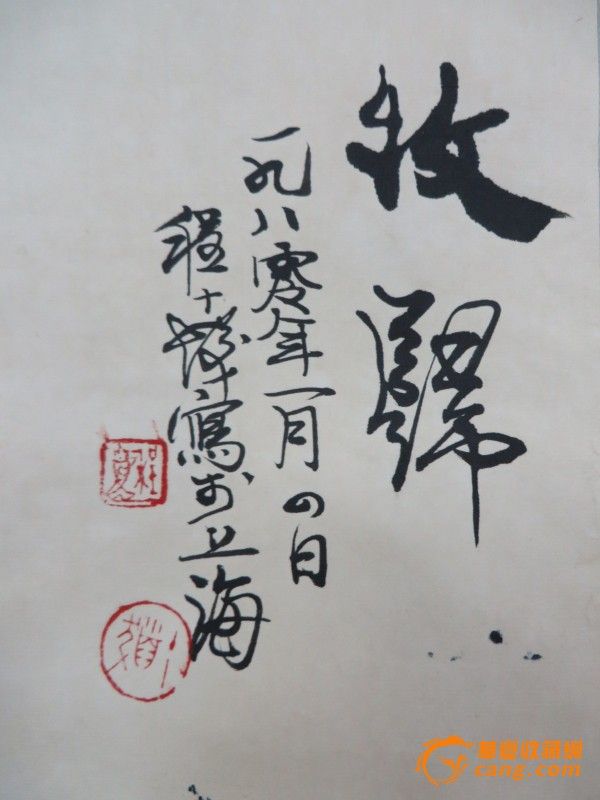 牧歸
一九八零年一月四日
程十髮寫於上海
程
華夏收藏網
cang.com